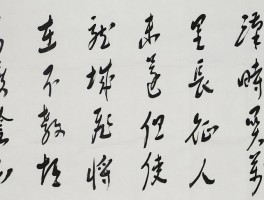 漢時關萬
里長征人
未還但使
龍城飛將
在不教胡